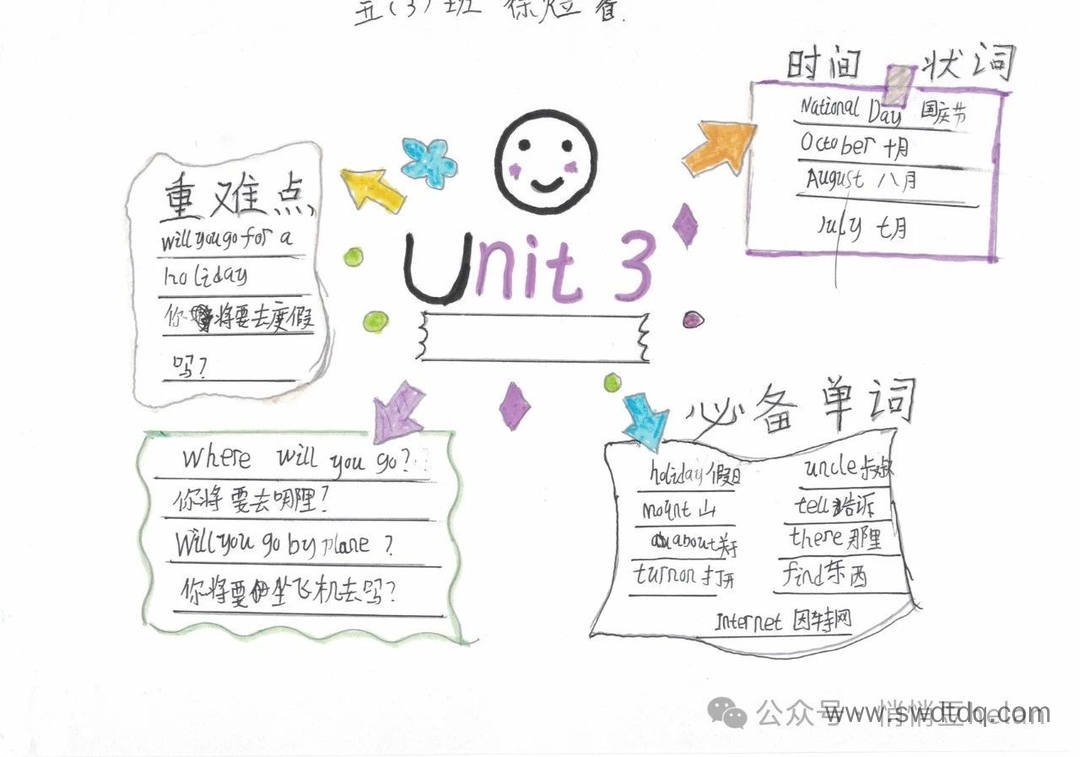 五(3)班 徐
时间 状词
National Day 国庆节
October 十月
August 八月
July 七月
重难点
will you go for a
holiday
你将要去度假
吗?
Unit 3
where will you go?
你将要去哪里?
Will you go by plane ?
你将要坐飞机去吗?
必备单词
holiday 假日
uncle 叔叔
mount 山
tell 告诉
about 关于
there 那里
turn on 打开
find 东西
Internet 因特网
公众号
www.swdtdq.com